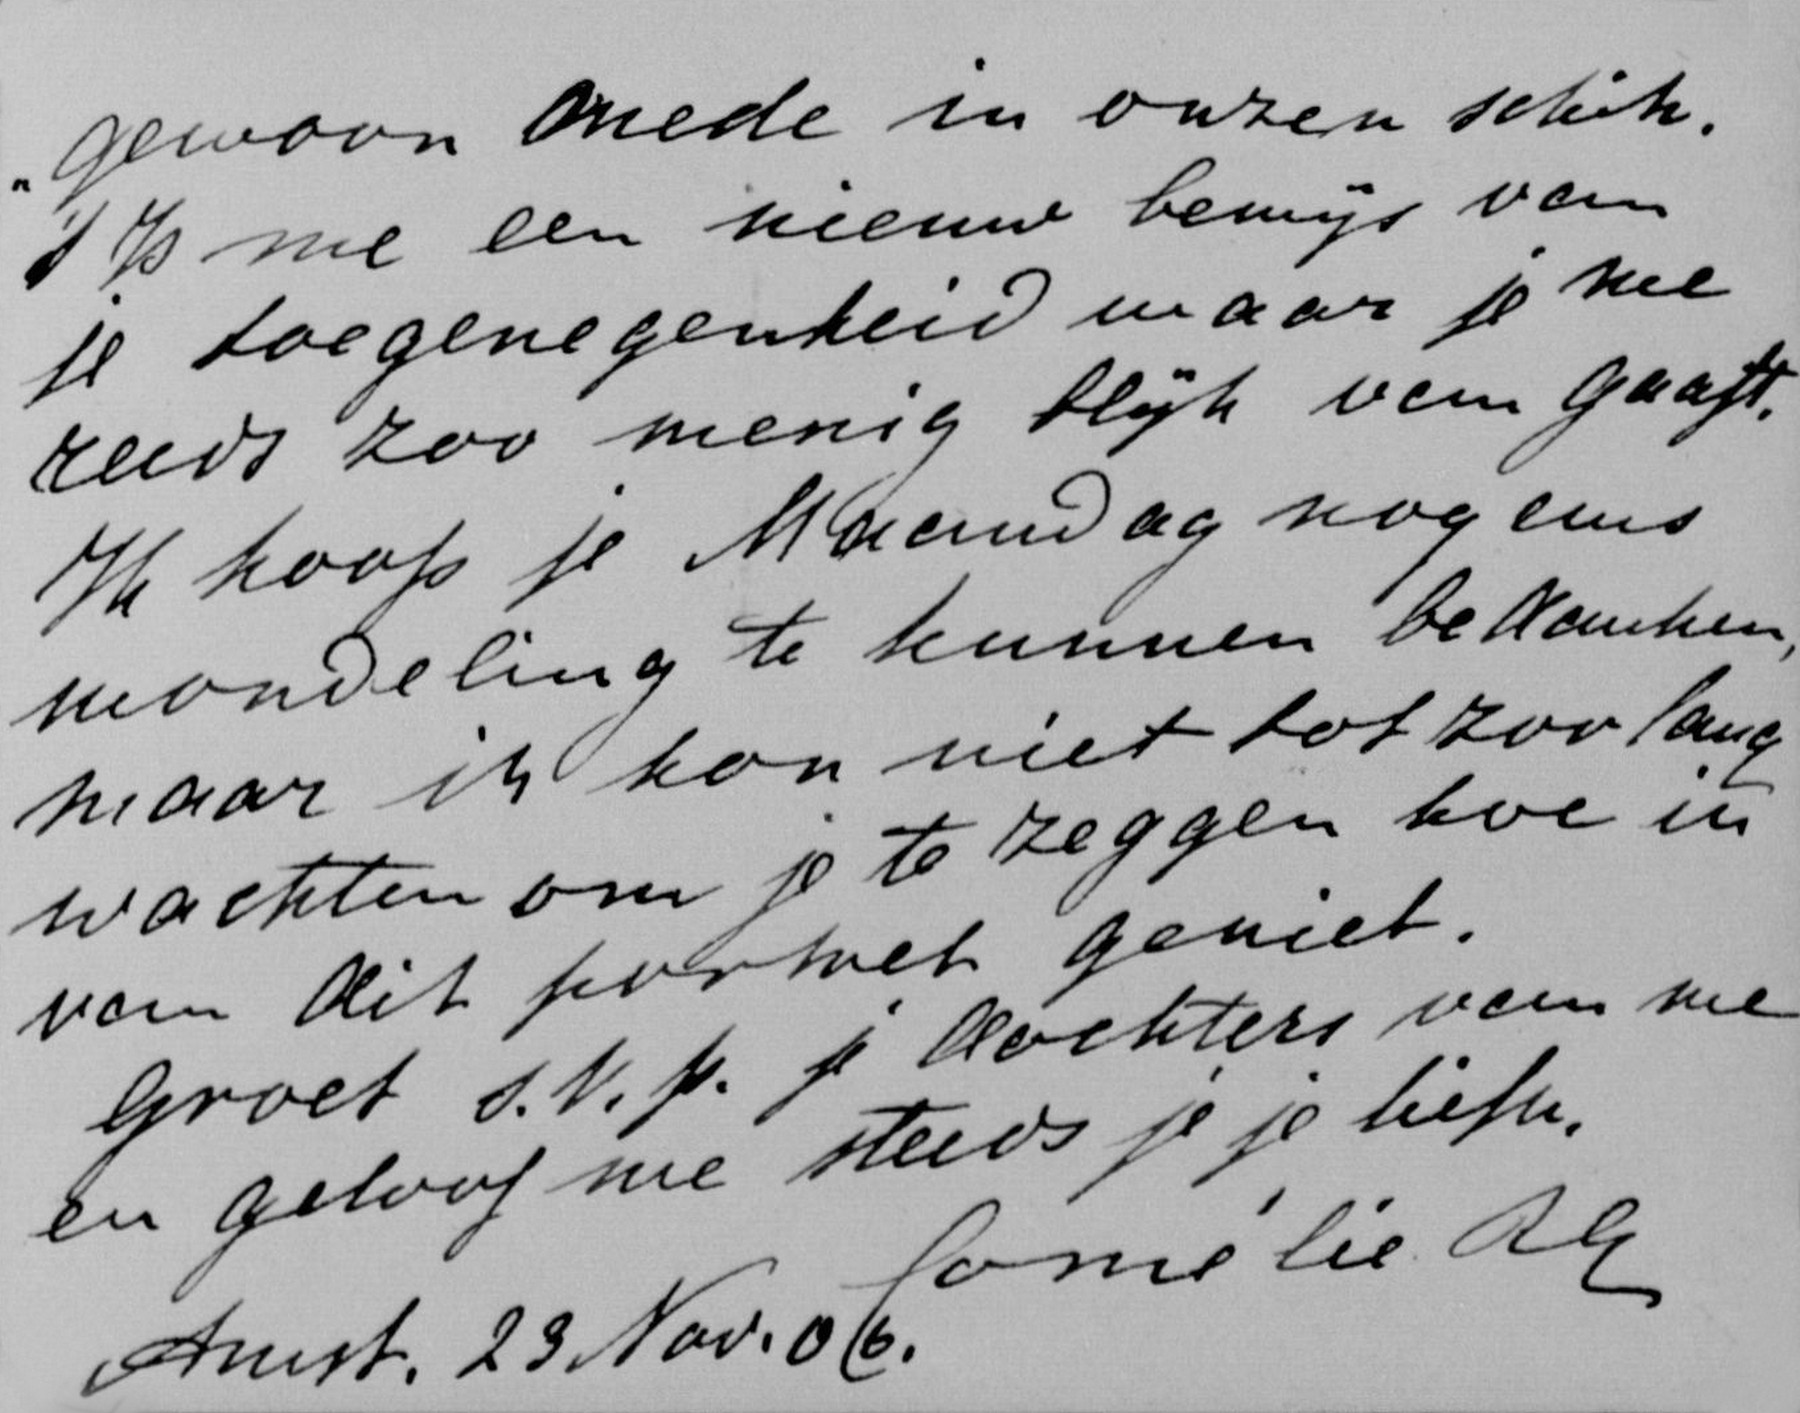 gewoon mede in onzen schik.
't Is me een nieuw bewijs van
je toegenegenheid waar je me
reeds zoo menig blijk van gaaft.
Ik hoop je Maandag nog eens
mondeling te kunnen bedanken,
maar ik kon niet tot zoo lang
wachten om je te zeggen hoe ik
van dit portret geniet.
Groet s.v.p. je dochters van me
en geloof me steeds je je liefh.
Cornélie
Amst. 23 Nov. 06.